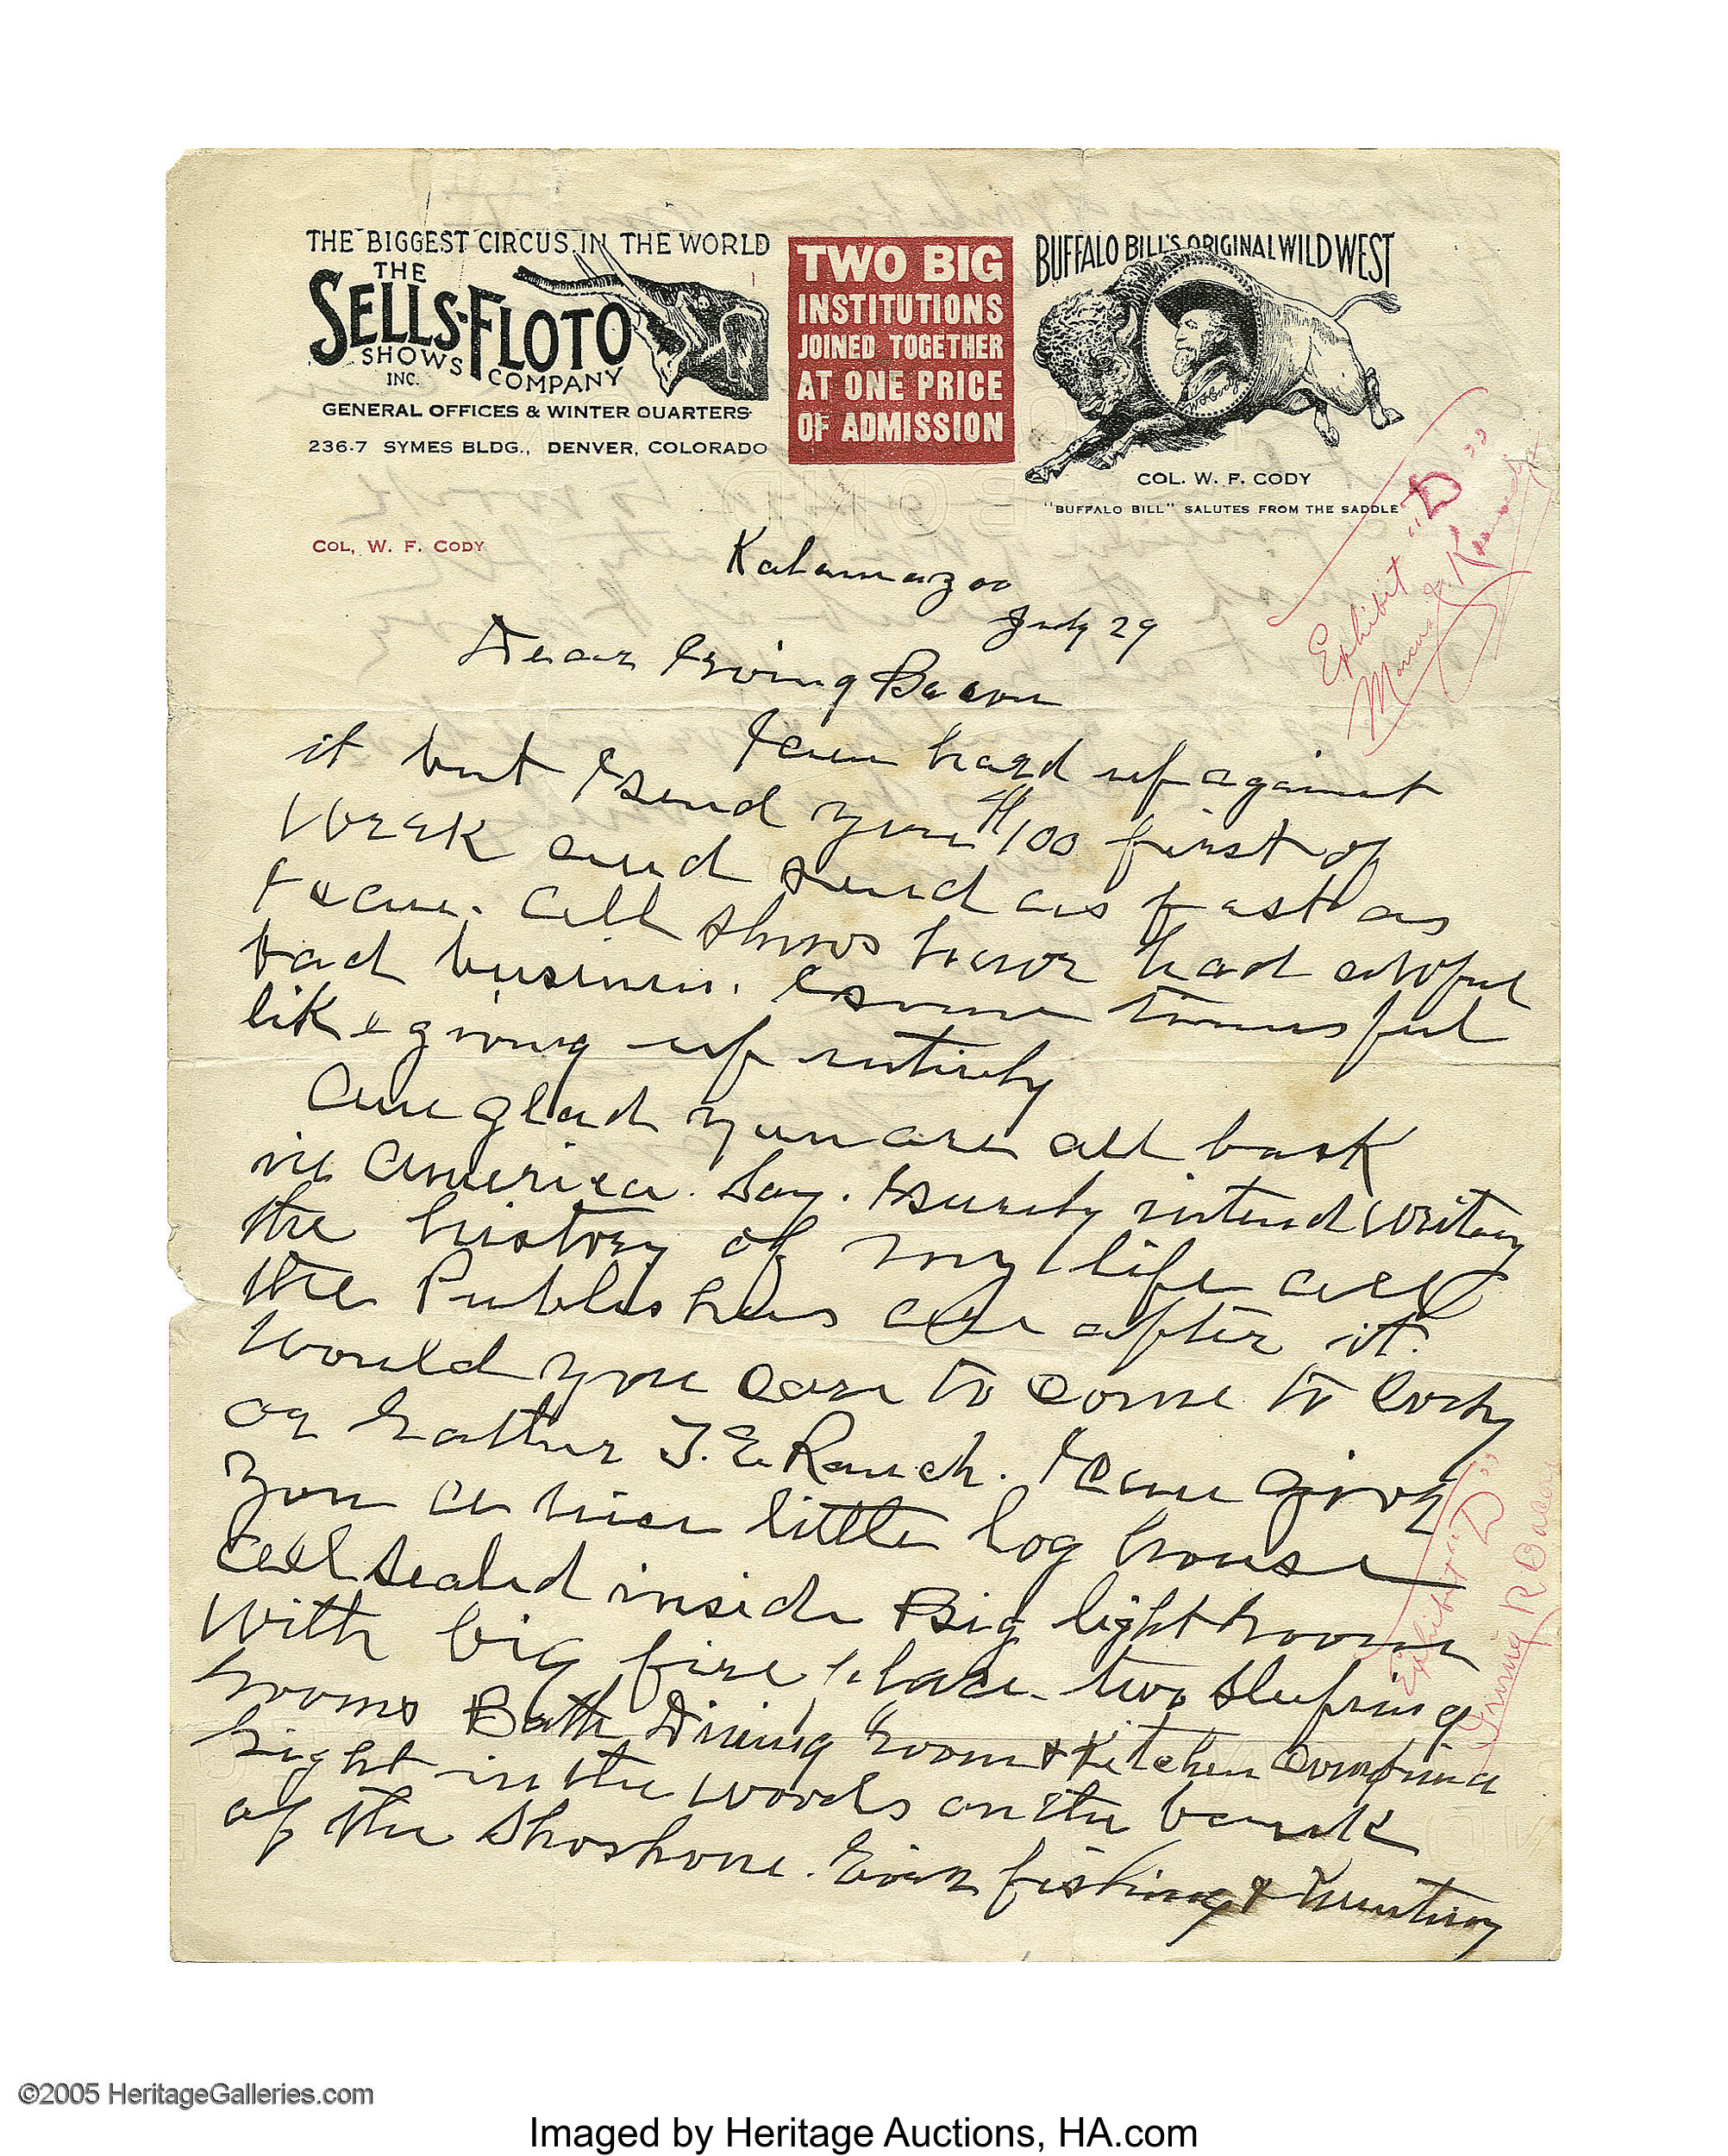 THE BIGGEST CIRCUS IN THE WORLD
THE
SELLS-FLOTO
SHOWS
INC. COMPANY
GENERAL OFFICES & WINTER QUARTERS
236-7 SYMES BLDG., DENVER, COLORADO
TWO BIG
INSTITUTIONS
JOINED TOGETHER
AT ONE PRICE
OF ADMISSION
BUFFALO BILL'S ORIGINAL WILD WEST
W.F. Cody
COL. W. F. CODY
"BUFFALO BILL" SALUTES FROM THE SADDLE
COL. W. F. CODY
Exhibit "D"
Marcus J. Kennedy
Kalamazoo
July 29
Dear Irving Bacon
I am hard up against
it but I send you $100 first of
Week and send as fast as
I can. All shows have had awful
bad business. I some times feel
like giving up entirely
Am glad you are all back
in America. Say. I surely intend writing
the history of my life all
the Publishers are after it.
Would you care to come to Cody
or rather T.E. Ranch. I can give
you a nice little log house
all sealed inside Big light room
with big fire place. two sleeping
rooms Bath Dining room & Kitchen
right in the woods on the bank
of the Shoshone. Fine fishing & Hunting
Exhibit "D"
Irving R Bacon
©2005 HeritageGalleries.com
Imaged by Heritage Auctions, HA.com